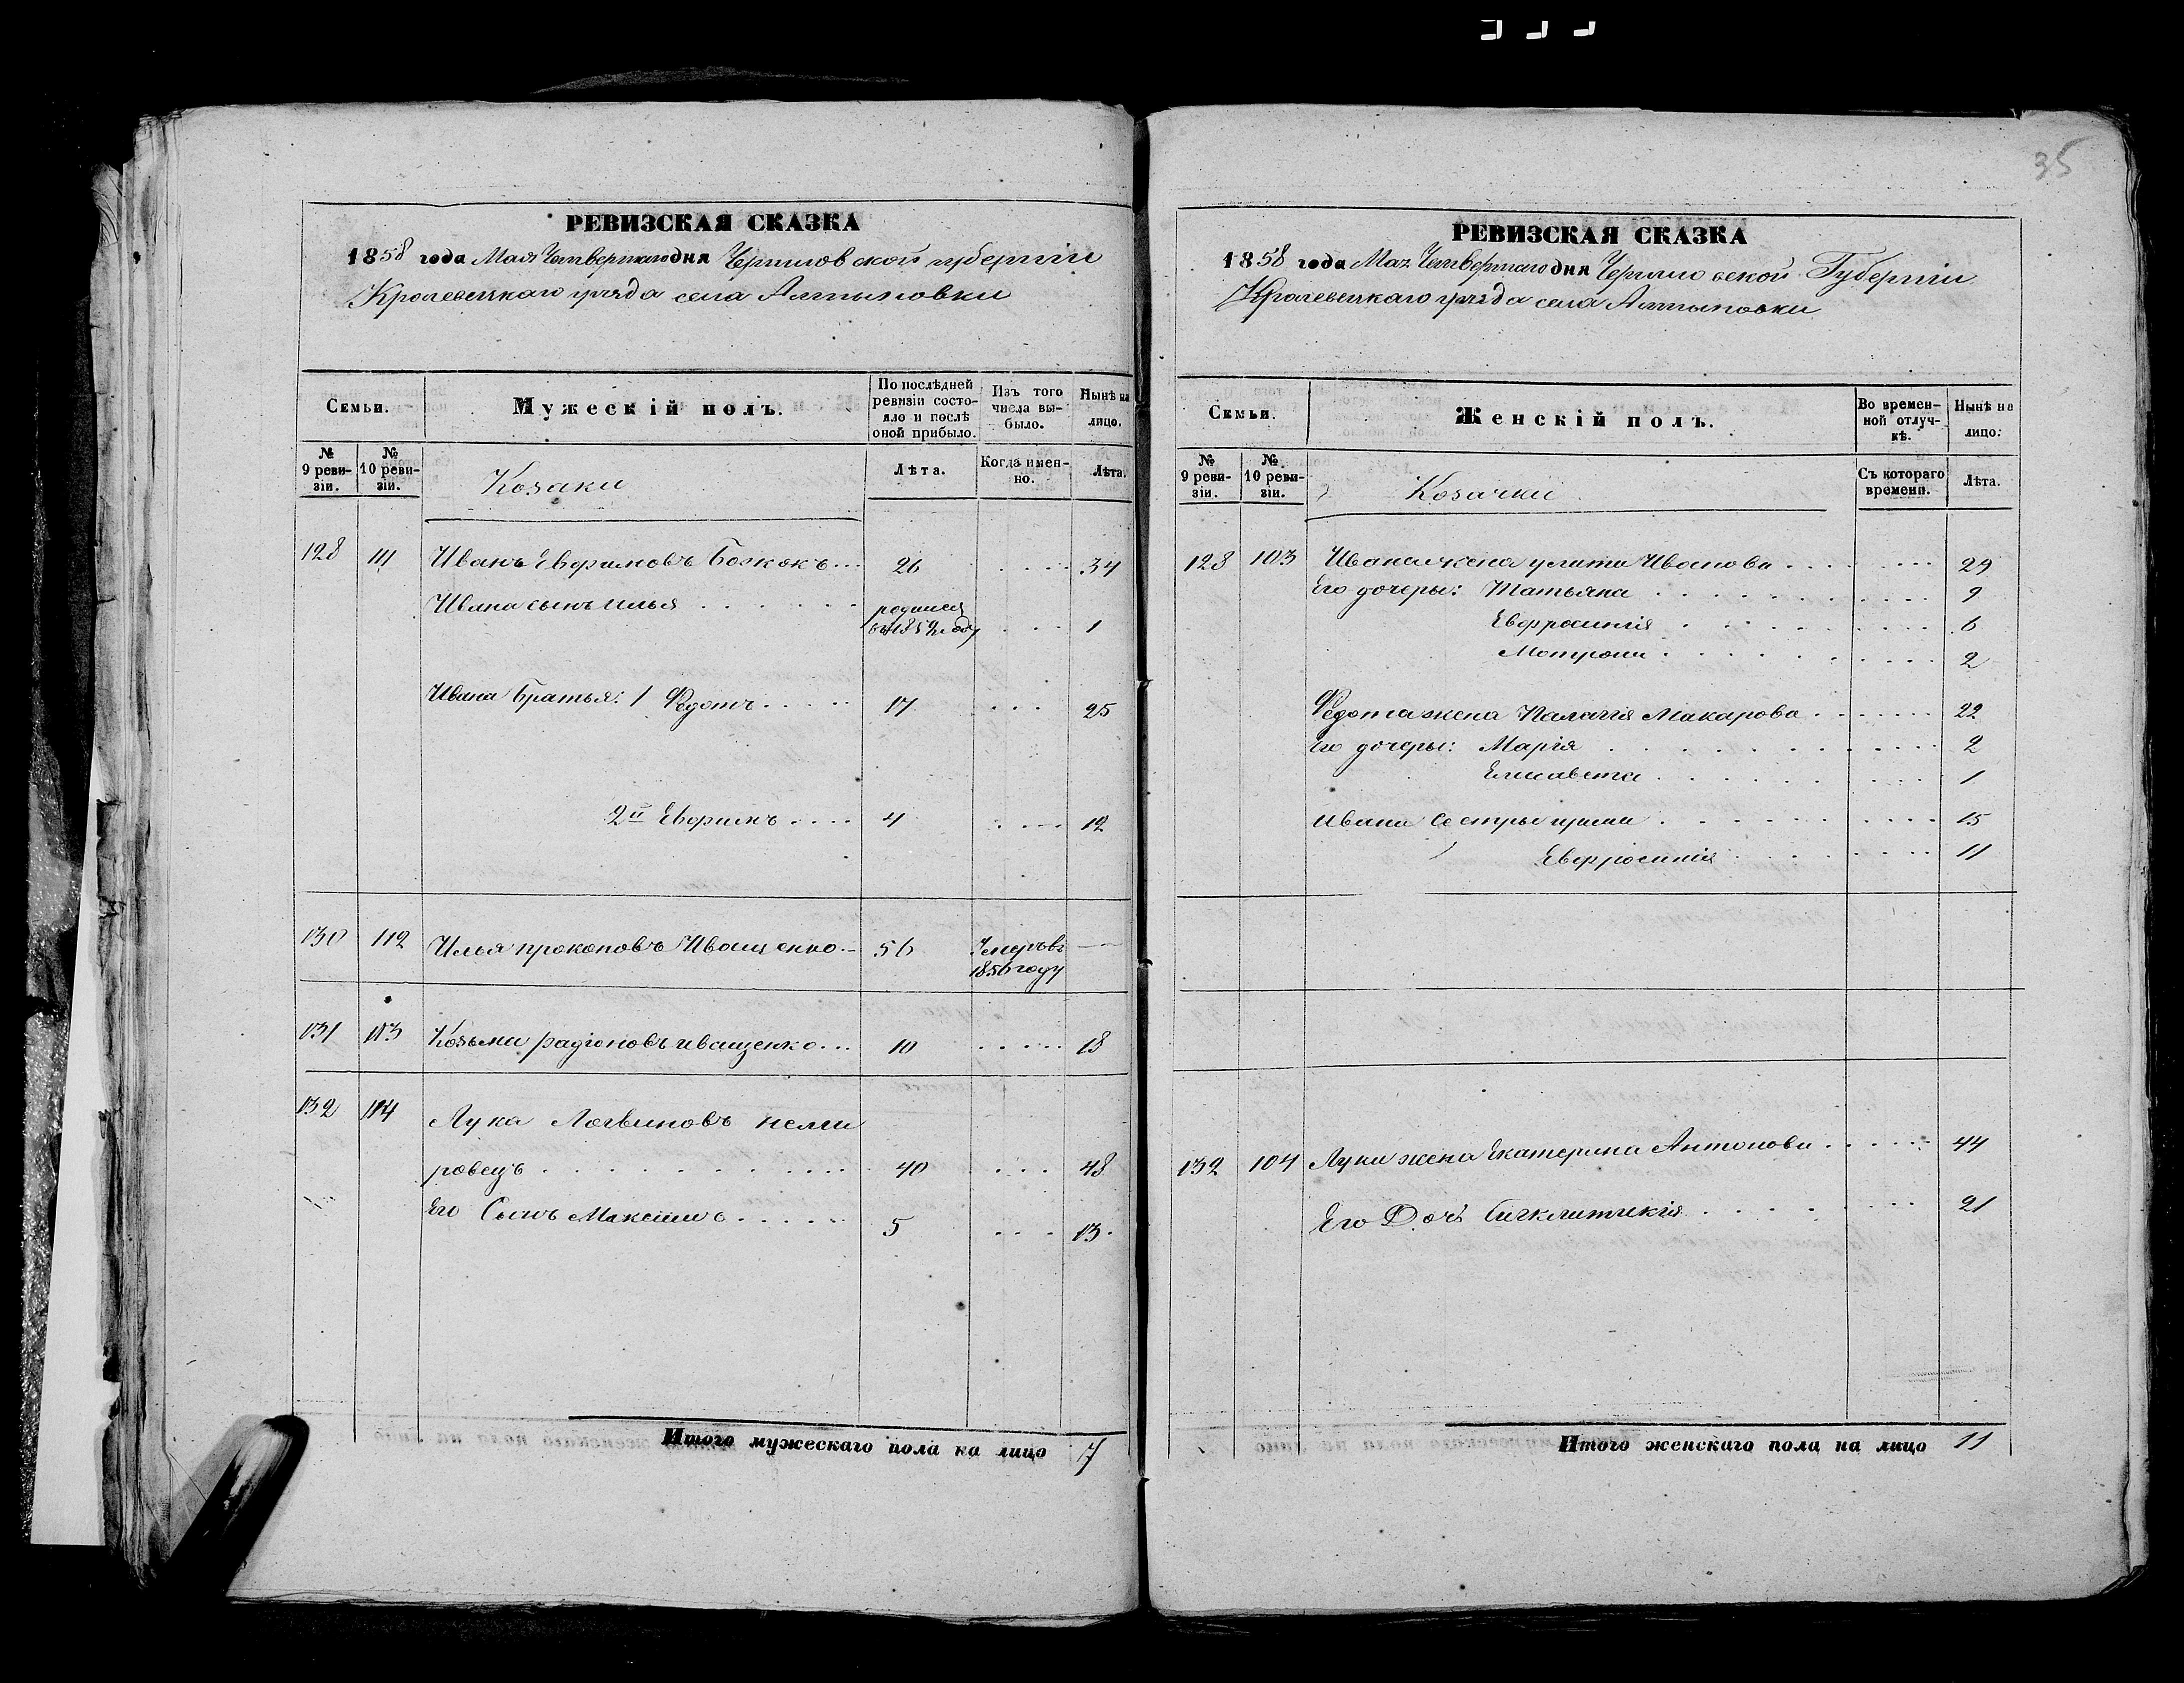 35
РЕВИЗСКАЯ СКАЗКА
1858 года Мая Четвертаго дня Черниговской губернiи
Кролевецкаго уезда села Алтыновки
Семьи.
Мужескій полъ.
По послѣдней ревизіи состояло и послѣ оной прибыло.
Изъ того числа выбыло.
Нынѣ на лицо.
№ 9 ревизіи.
№ 10 ревизіи.
Козаки
Лѣта.
Когда именно.
Лѣта.
128 111 Иванъ Евфимовъ Божокъ... 26 34
Ивана сынъ Илья родился въ 1857 году 1
Ивана братья: 1 Федотъ 17 25
2й Евфимъ 4 12
130 112 Илья прокоповъ Иващенко 56 Умеръ въ 1856 году —
131 113 Козьма радіоновъ иващенко... 10 18
132 114 Лука Логвиновъ неми
ровецъ 40 48
Его Сынъ Максимъ 5 13.
Итого мужескаго пола на лицо 7
РЕВИЗСКАЯ СКАЗКА
1858 года Мая Четвертаго дня Черниговской Губернiи
Кролевецкаго уезда села Алтыновки
Семьи.
Женскій полъ.
Во временной отлучкѣ.
Нынѣ на лицо.
№ 9 ревизіи.
№ 10 ревизіи.
Козачки
Съ котораго времени.
Лѣта.
128 103 Ивана жена улита Иванова 29
Его дочеры: Татьяна 9
Евфросинія 6
Мотрона 2
Федота жена Палагія Макарова 22
Его дочеры: Марія 2
Елисавета 1
Ивана Сестры 15
Евфросинія 11
132 104 Луки жена Екатерина Антонова 44
Его Дочь 21
Итого женскаго пола на лицо 11